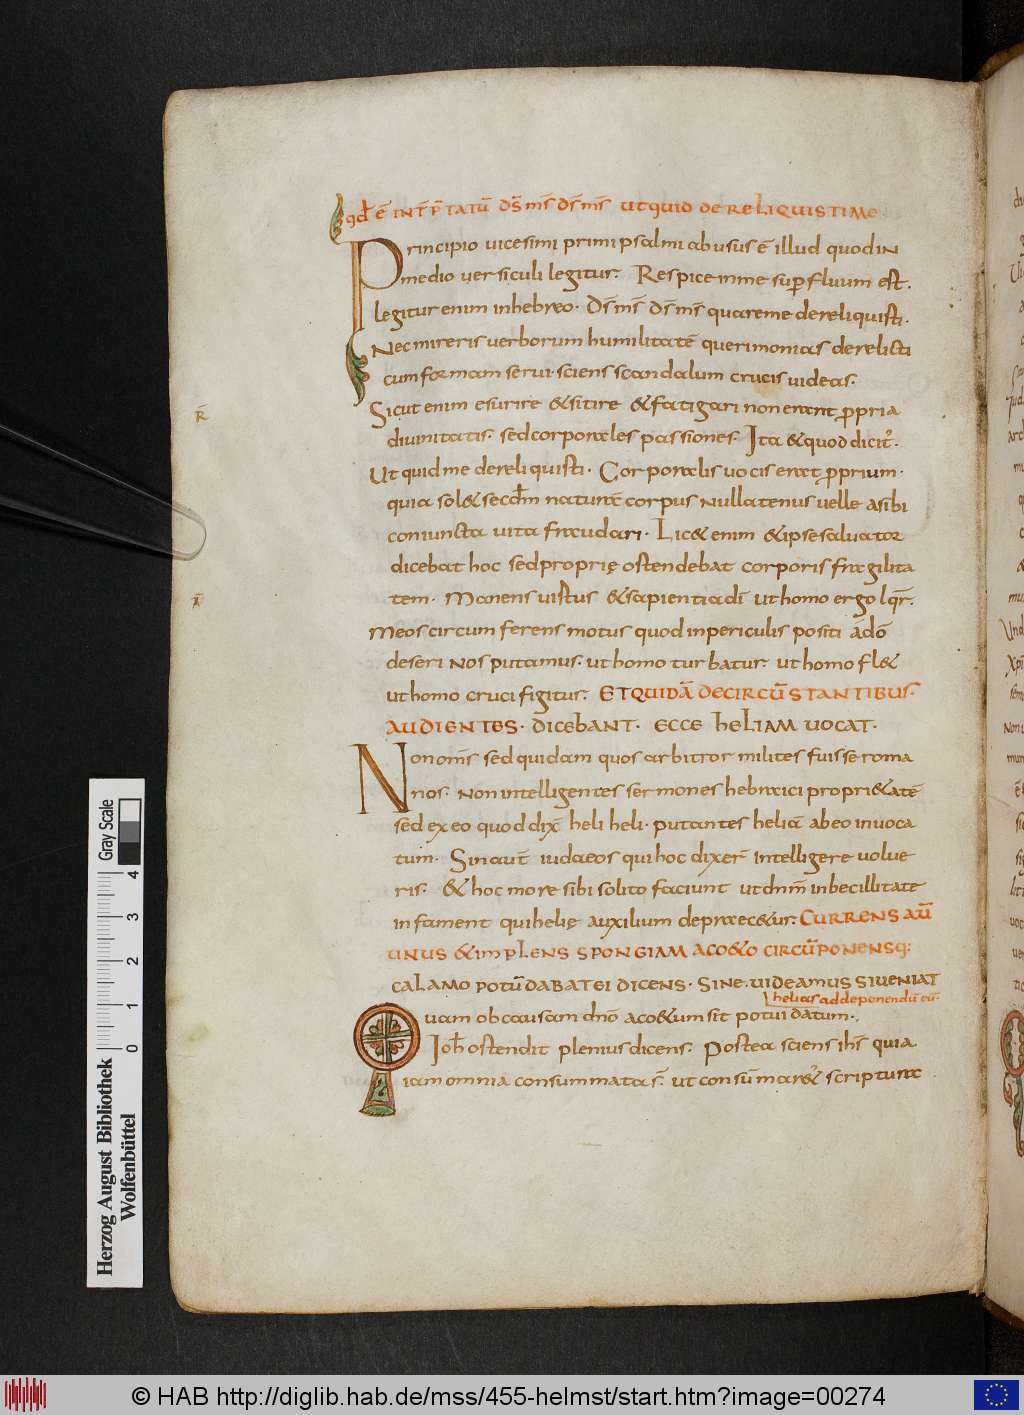 qd̄ ē int̄p̄tatū d̄s m̄s d̄s m̄s utquid dereliquistime
Principio uicesimi primi psalmi abusus ē illud quod in
medio uersiculi legitur. Respice inme sup̄fluum est.
legitur enim inhebreo. D̄s m̄s d̄s m̄s quareme dereliquisti.
Nec mireris uerborum humilitatē querimonias derelicti
cum formam serui. sciens scandalum crucis uideas.
R̄
Sicut enim esurire &sitire &fatigari non erant p̄pria
diuinitatis. sed corporales passiones. Ita &quod dicit̓.
Ut quid me dereliquisti. Corporalis uocis erat p̄prium.
quia sol& secd̄m naturae corpus nullatenus uelle asibi
coniuncta uita fraudari. Lic& enim &ipse saluator
dicebat hoc sed proprię ostendebat corporis fragilita
tem. Manens uirtus &sapientia dī ut homo ergo lq̄r.
Meos circumferens motus quod inpericulis positi ādō
deseri nos putamus. ut homo turbatur. ut homo fl&
ut homo crucifigitur. ETQUIDĀ DECIRCŪSTANTIBUS.
AUDIENTES. DICEBANT. ECCE HELIAM UOCAT.
Non om̄s sed quidam quos arbitror milites fuisse roma
nos. Non intelligentes sermones hebraici propri&atē
sed ex eo quod dix̄ heli heli. putantes heliā ab eo inuoca
tum. Sin aut̄ iudaeos qui hoc dixer̄ intelligere uolue
ris. & hoc more sibi solito faciunt ut dn̄m inbecillitate
infament qui helię auxilium deprec&ur. CURRENS AŪ
UNUS &IMPLENS SPONGIAM ACO&O CIRCŪPONENSQ:
CALAMO POTŪ DABAT EI DICENS. SINE. UIDEAMUS SI UENIAT
helias ad deponendū eū.
Quam ob causam dn̄o aco&um sit potui datum.
Ioh̄ ostendit plenius dicens. Postea sciens ih̄s quia
iam omnia consummata s̄. ut consūmar&̓ scripturae
Gray Scale
0 1 2 3 4
Herzog August Bibliothek
Wolfenbüttel
© HAB http://diglib.hab.de/mss/455-helmst/start.htm?image=00274